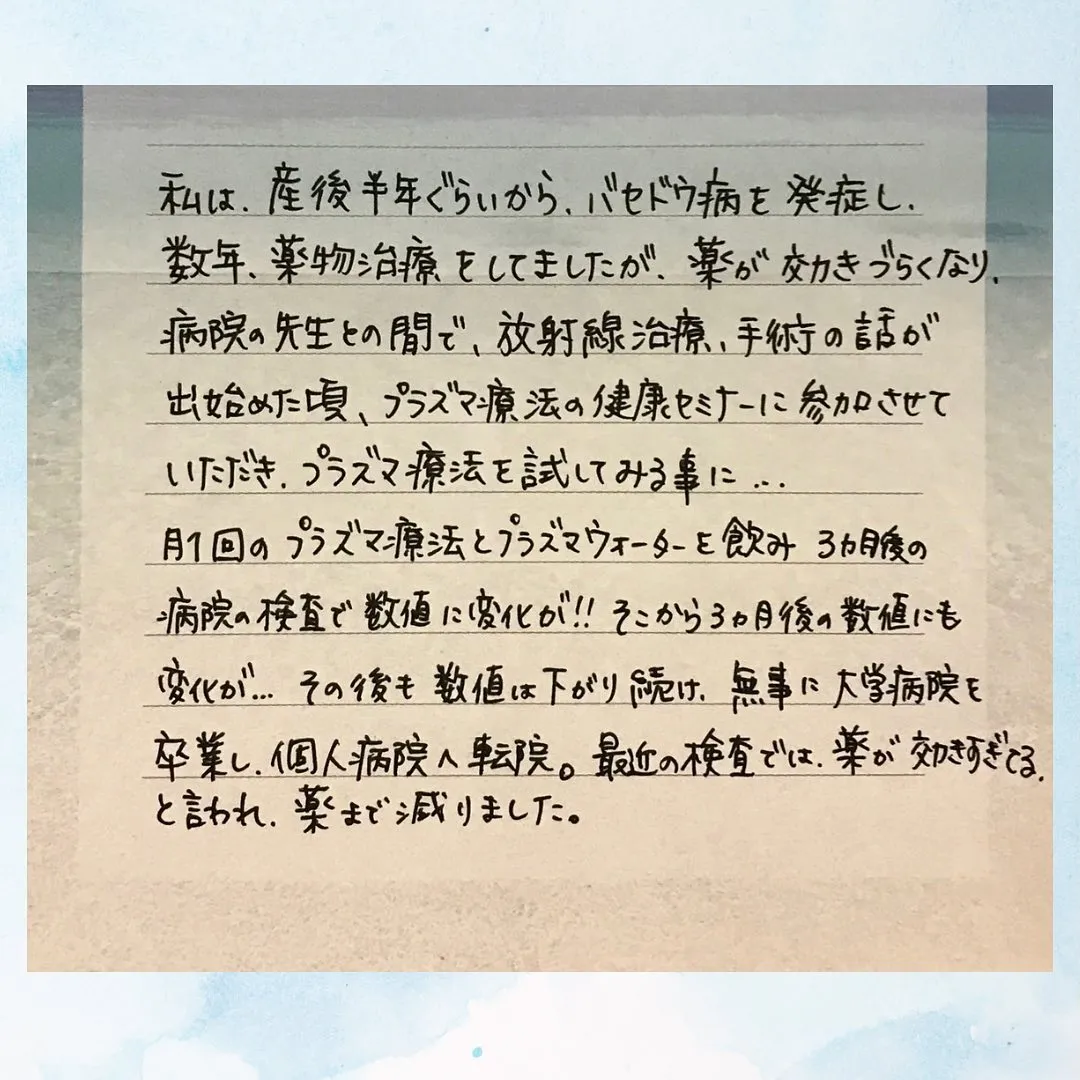 私は、産後半年ぐらいから、バセドウ病を発症し、
数年、薬物治療をしてましたが、薬が効きづらくなり、
病院の先生との間で、放射線治療、手術の話が
出始めた頃、プラズマ療法の健康セミナーに参加させて
いただき、プラズマ療法を試してみる事に…
月1回のプラズマ療法とプラズマウォーターを飲み3カ月後の
病院の検査で数値に変化が!!そこから3カ月後の数値にも
変化が…その後も数値は下がり続け、無事に大学病院を
卒業し、個人病院へ転院。最近の検査では、薬が効きすぎてる、
と言われ、薬まで減りました。